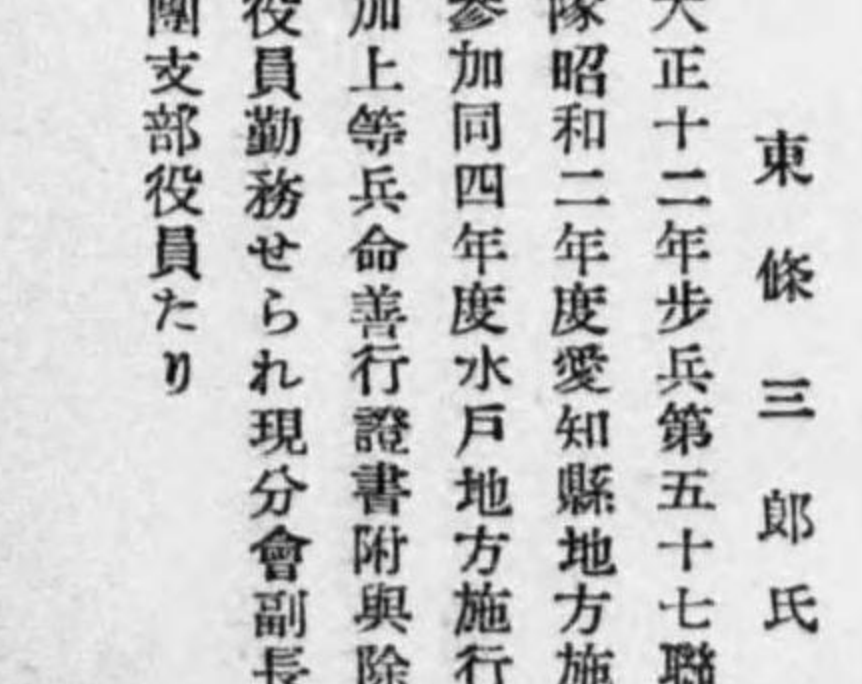 東條三郎氏
大正十二年步兵第五十七聯
隊昭和二年度愛知縣地方施
參加同四年度水戶地方施行
加上等兵命善行證書附與除
役員勤務せられ現分會副長
團支部役員たり